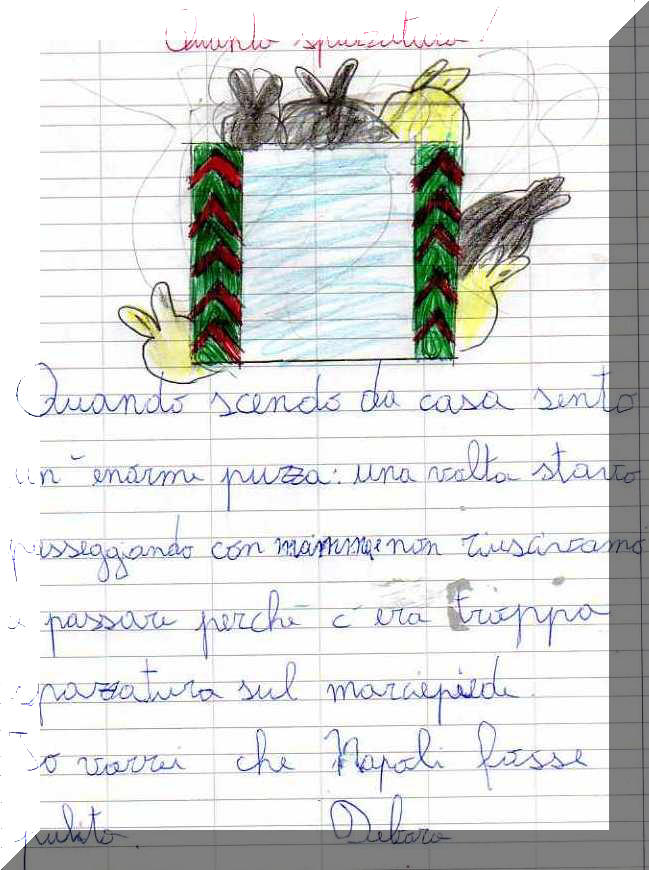 Quanta spazzatura!
Quando scendo da casa sento
un' enorme puzza: una volta stavo
passeggiando con mamma e non riuscivamo
a passare perchè c'era troppa
spazzatura sul marciepiede.
Io vorrei che Napoli fosse
pulita. Debora